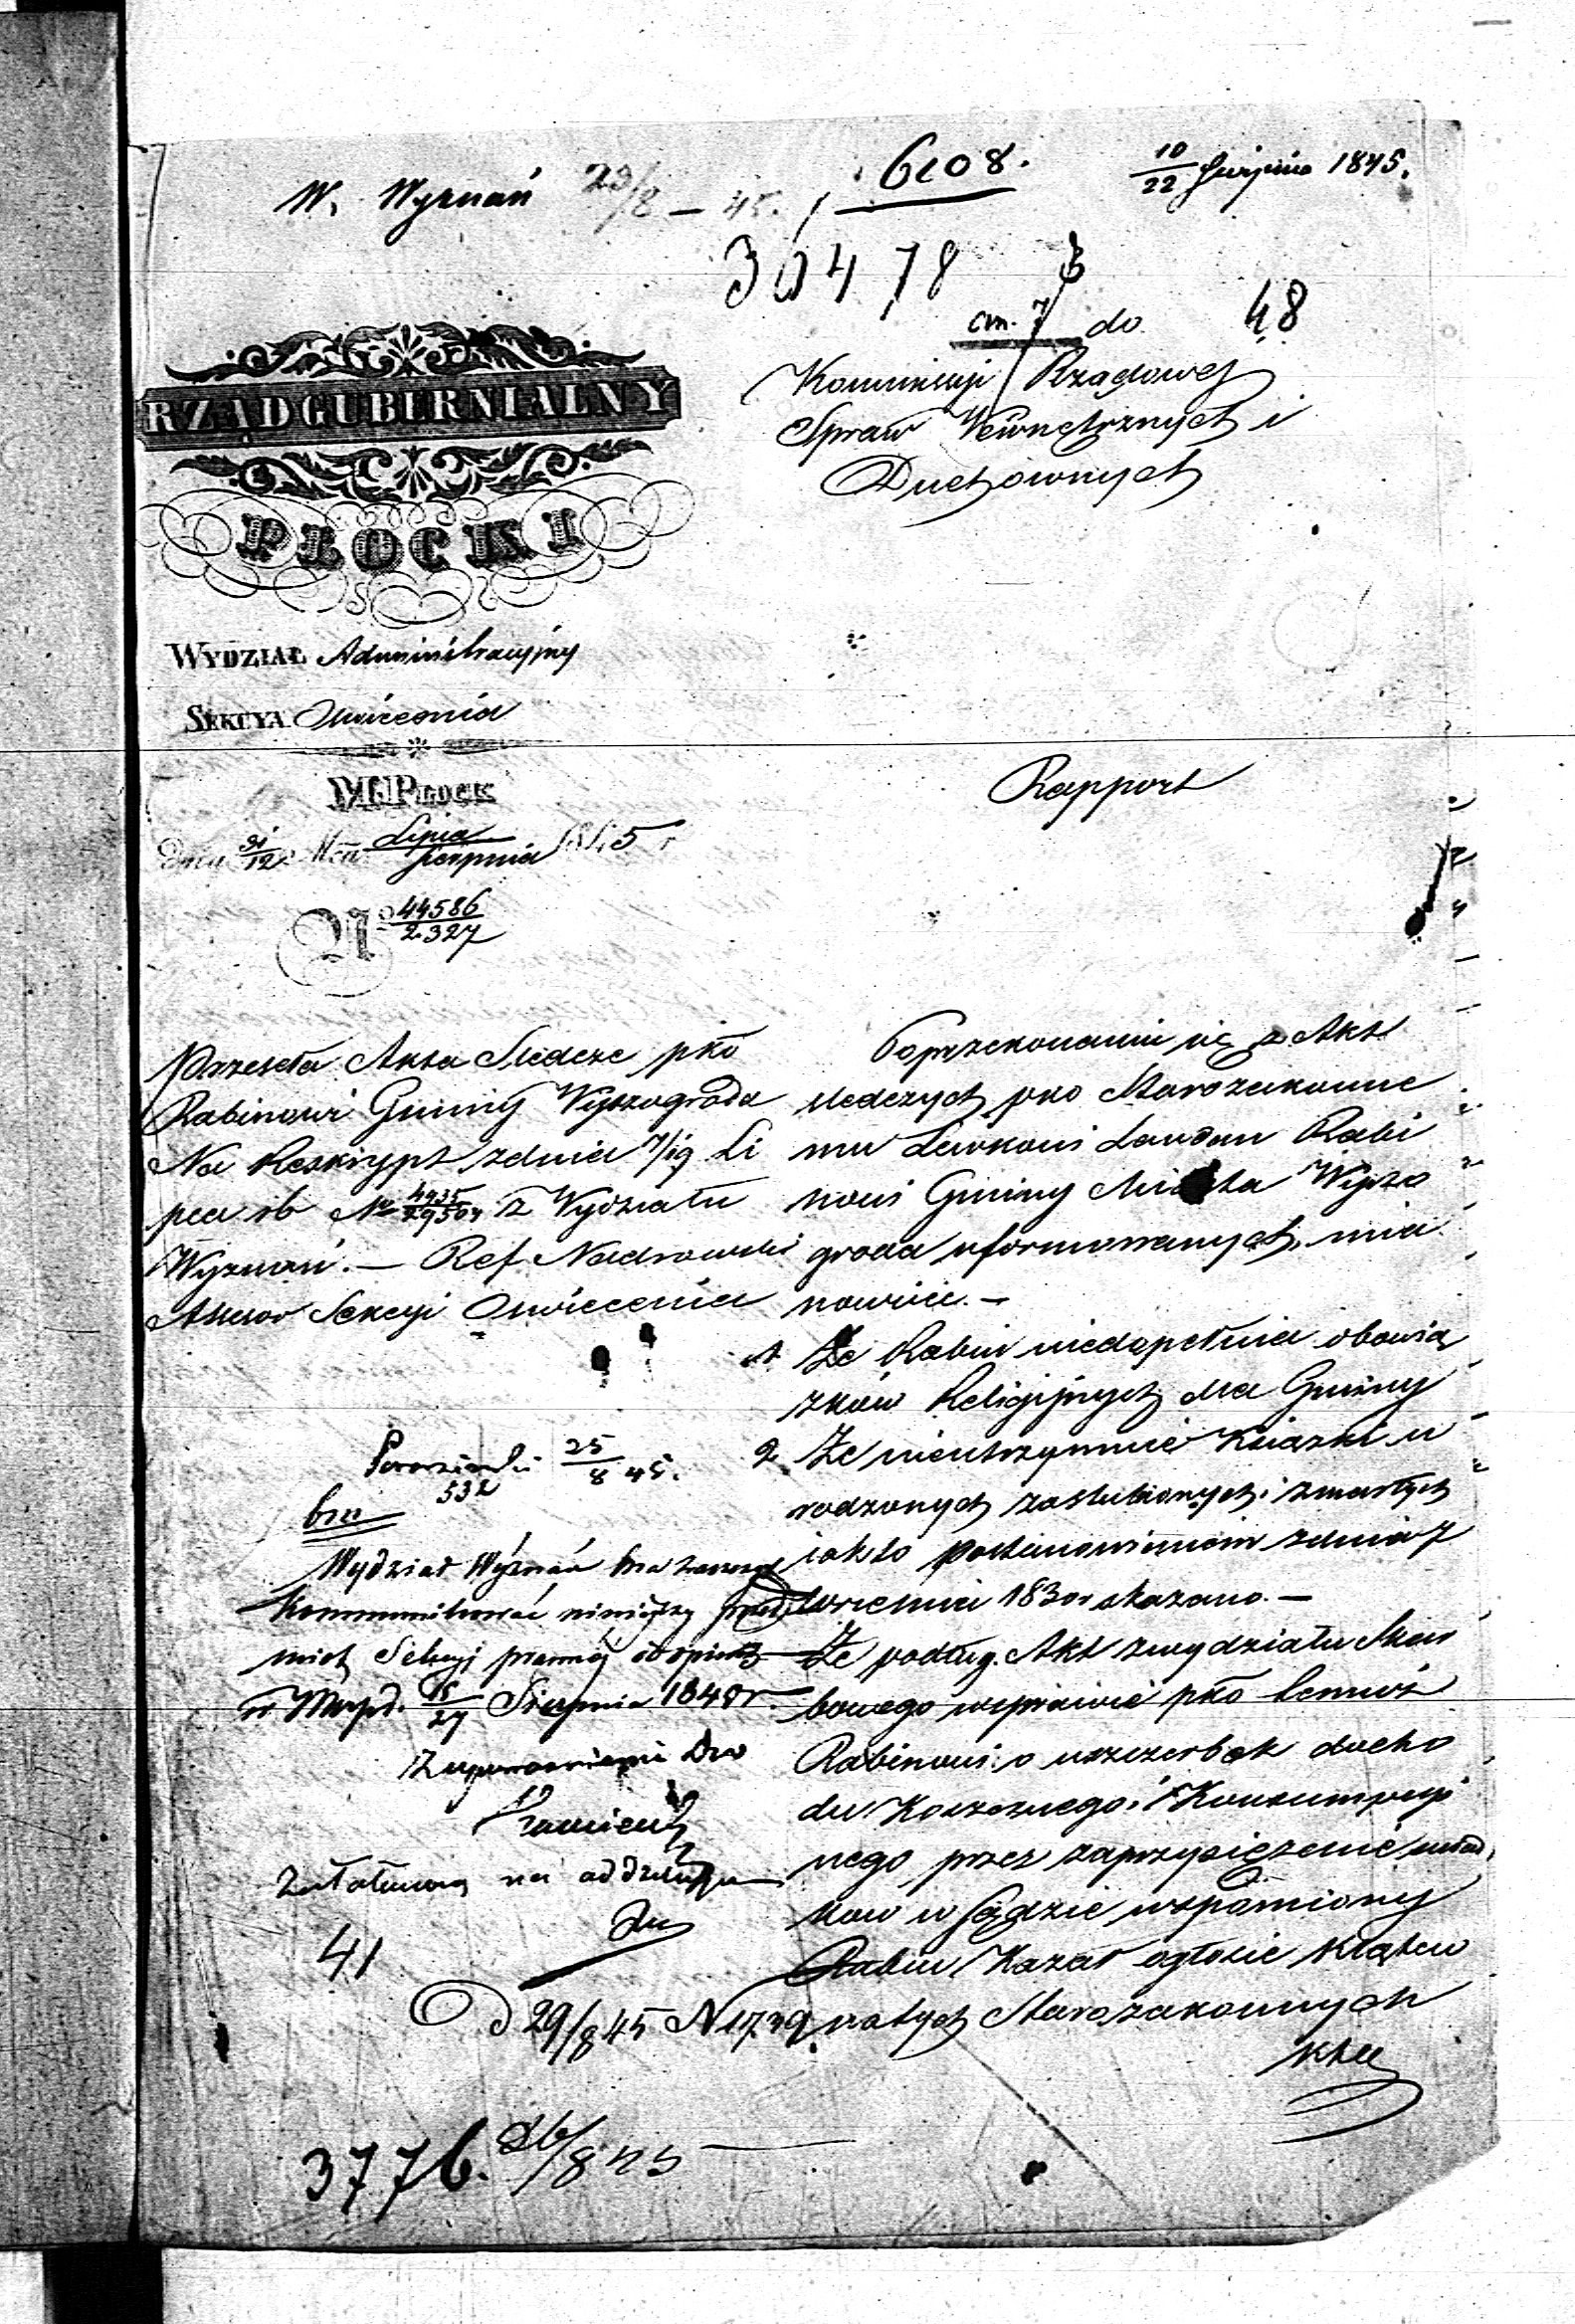 W. Wyznań 23/8 – 45.
6108.
10/22 Sierpnia 1845.
30478
48
do
Kommissyi Rządowej
Spraw Wewnętrznych i
Duchownych
RZĄD GUBERNIALNY
PŁOCKI
WYDZIAŁ Administracyjny
SEKCYA Oświecenia
W PŁOCK
Dnia 31/12 Mca Lipca/Sierpnia 1845 r
No 44586/2327
Rapport
Przeseła Akta Sledcze pko
Rabinowi Gminy Wyszogroda
Na Reskrypt z dnia 7/19 Li
pca rb No z Wydziału
Wyznań. — Ref
Assesor Sekcyi Oswiecenia
Po przekonaniu się z Akt
sledczych pko Starozakonne
mu Lewkowi Landau Rabi
nowi Gminy Miasta Wyszo
groda uformowanych, mia
nowicie. —
1 Że Rabin niedopełnia obowią
zków Religijnych dla Gminy
2 Że nieutrzymuie Książki u
rodzonych zaslubionych i zmarłych
iak to postanowieniem z dnia 7
Wrzesnia 1830r wskazano. —
3 Że podług Akt z wydziału Skar
bowego wsprawie pko temuż
Rabinowi o uszczerbek docho
du Koszernego i Konsumpcyi
nego przez zaprzysiężenie świad
kow w Sądzie wspomniony
Rabin Kazał ogłosić klątew
na tych Starozakonnych
którz
25/8 45.
532
br
Wydział Wyznań
Kommunikować niniejszy
Sekcyi prawnej do opinii
w Warsz. 15/27 Sierpnia 184
Z upoważnienia Dro
41
D 29/8 45 N 1739
3776. 26/8 45